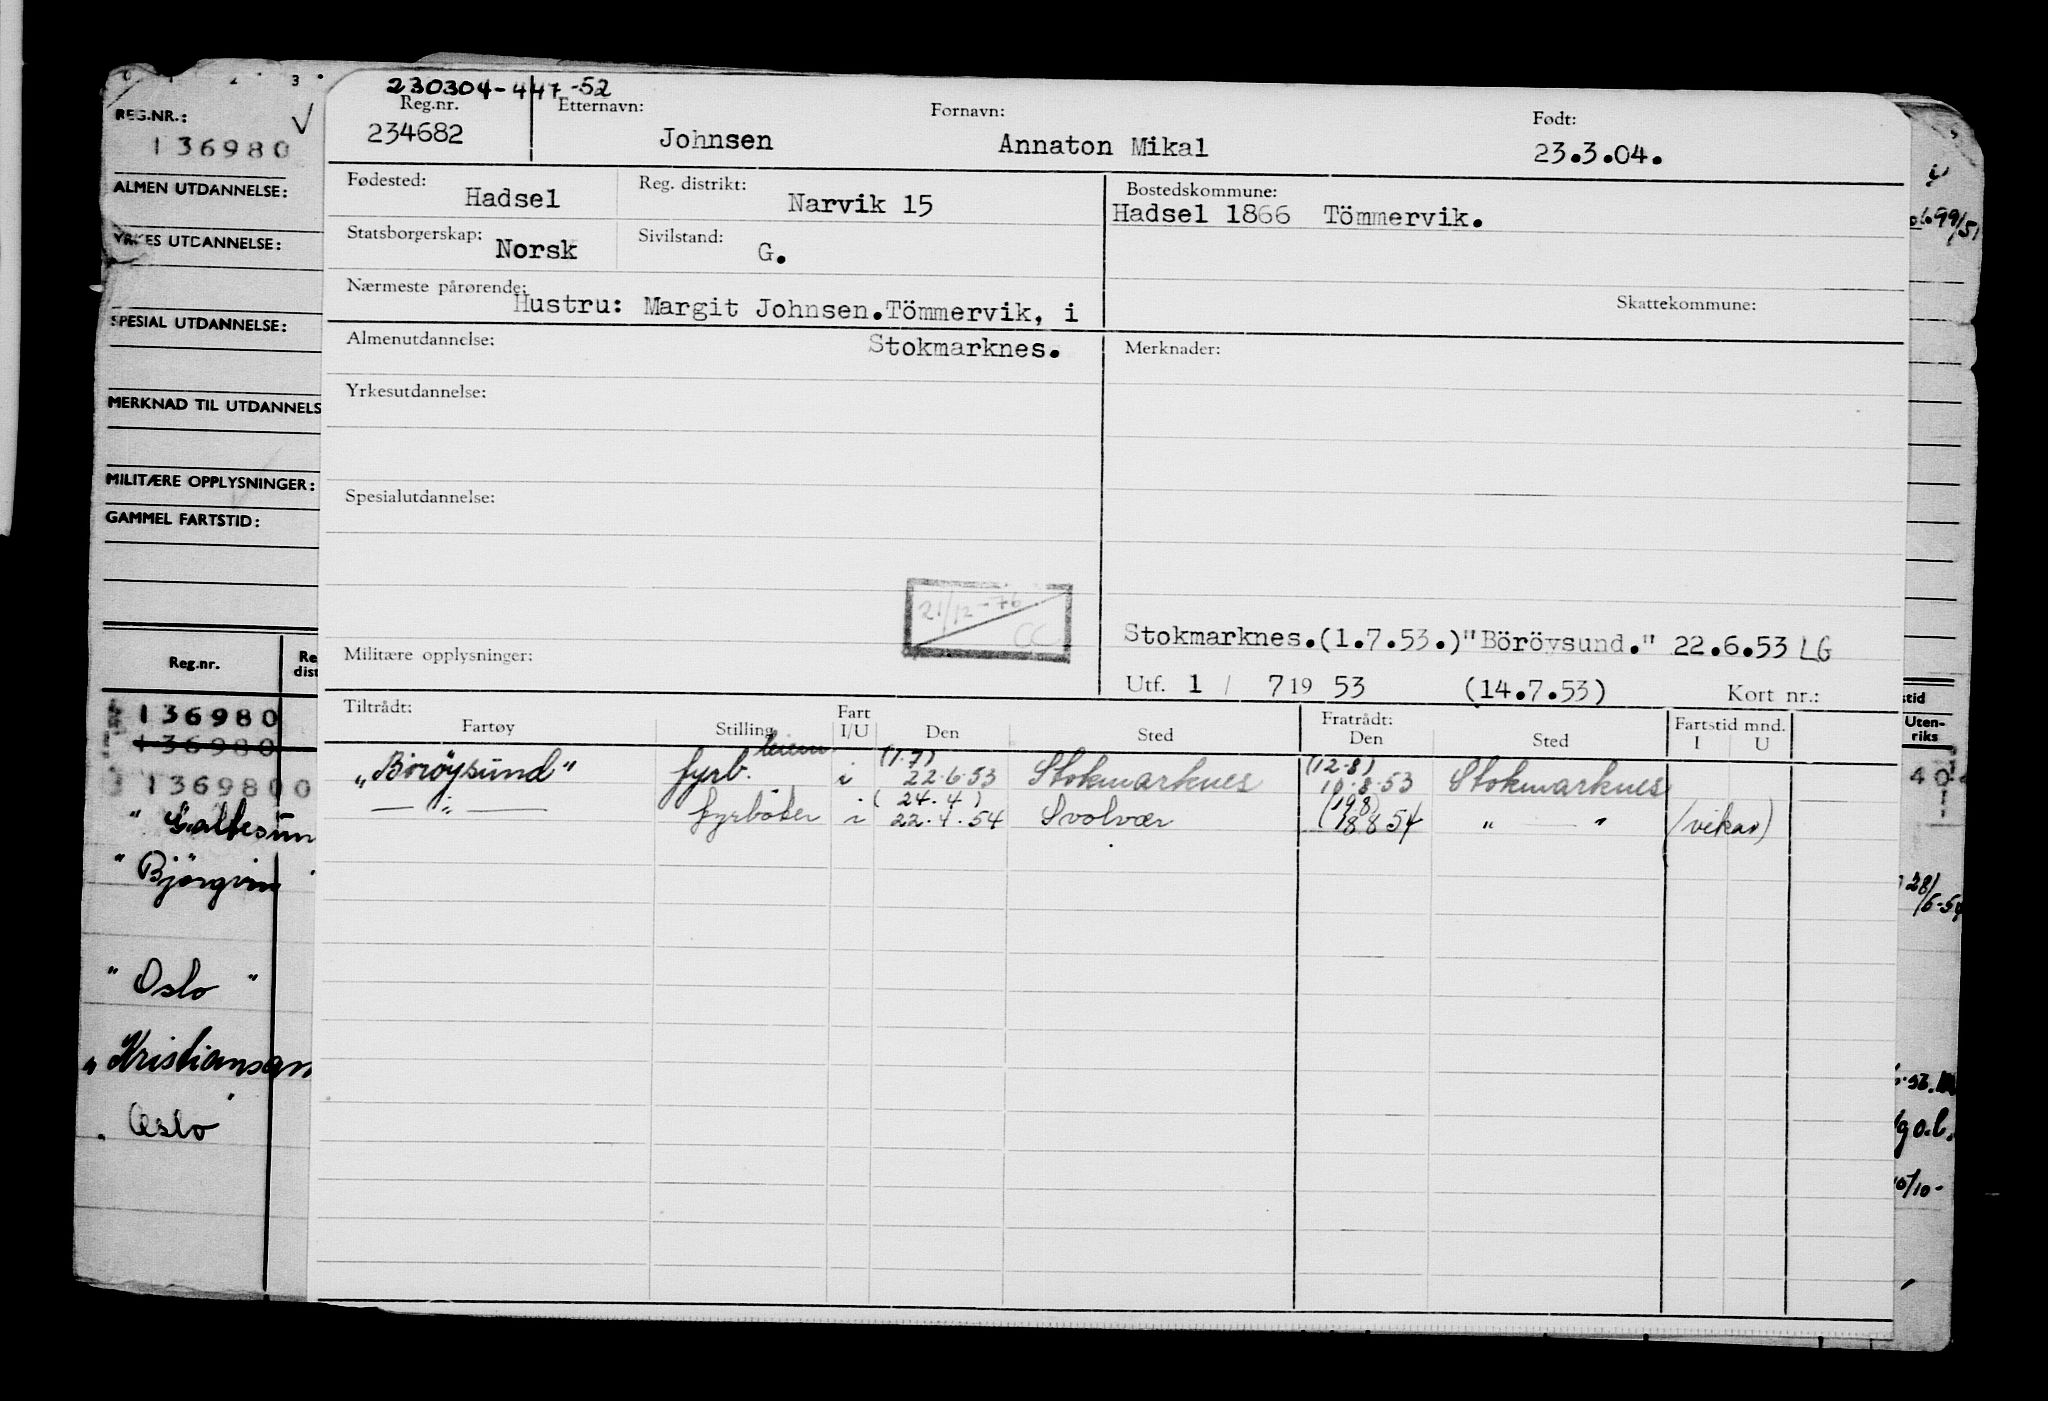 230304-447-52
Reg.nr. Etternavn: Fornavn: Født:
234682 Johnsen Annaton Mikal 23.3.04.
Fødested: Hadsel Reg. distrikt: Narvik 15 Bostedskommune:
Hadsel 1866 Tömmervik.
Statsborgerskap: Norsk Sivilstand: G.
Nærmeste pårørende: Hustru: Margit Johnsen.Tömmervik, i Skattekommune:
Almenutdannelse: Stokmarknes. Merknader:
Yrkesutdannelse:
Spesialutdannelse:
21/12-76
CC
Stokmarknes.(1.7.53.)"Böröysund." 22.6.53 LG
Militære opplysninger:
Utf. 1 / 7 19 53 (14.7.53) Kort nr.:
Tiltrådt: Fart Fratrådt: Fartstid mnd.
Fartøy Stilling I/U Den Sted Den Sted I U
(1.7) (12.8)
"Börøysund" fyrb. i 22.6.53 Stokmarknes 10.8.53 Stokmarknes
(24.4) (19.8)
— " — fyrbøter i 22.4.54 Svolvær 18 8 54 " — " (vikar)
0 1 2 3
REG.NR.:
136980
ALMEN UTDANNELSE:
YRKES UTDANNELSE:
SPESIAL UTDANNELSE:
MERKNAD TIL UTDANNELS
MILITÆRE OPPLYSNINGER:
GAMMEL FARTSTID:
Reg.nr. Re
dist
136980
136980
1369800
" Galtesun
" Bjørgvin
" Oslo "
" Kristiansan
" Oslo
99/51
stid
Uten-
riks
40
28/
6-54
10/10-